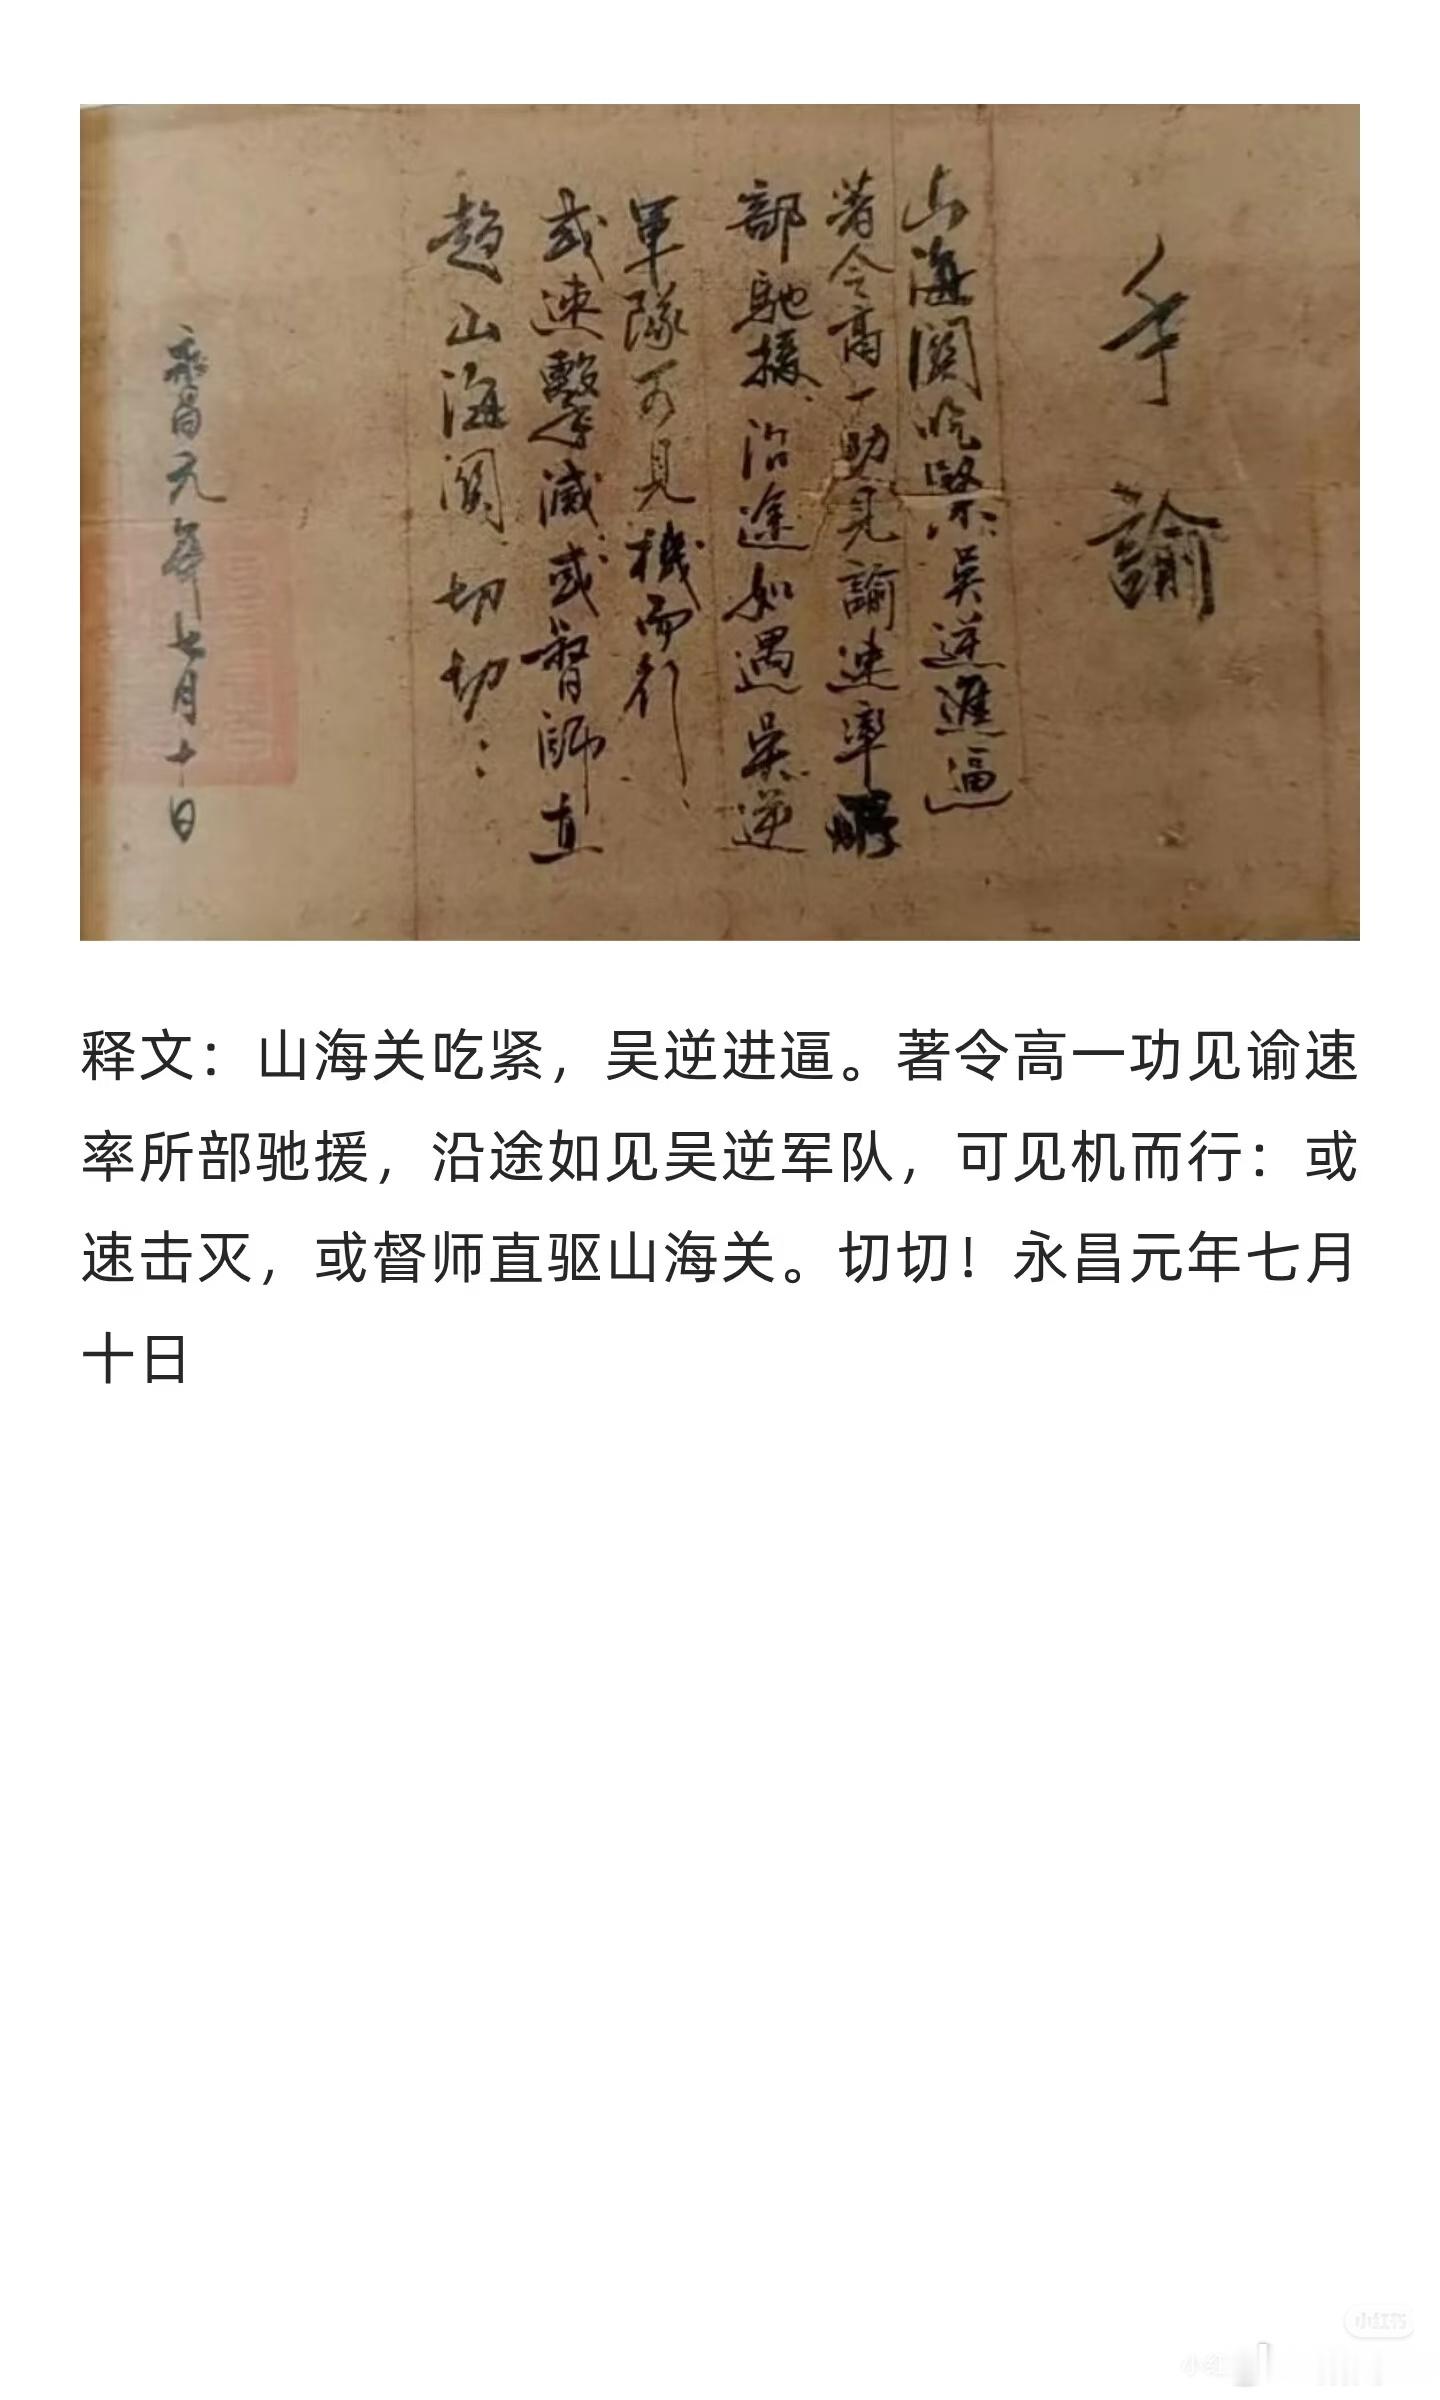 手諭
山海關吃緊吳逆進逼
著令高一功見諭速率所
部馳援沿途如遇吳逆
軍隊可見機而行
或速擊滅或督師直
趋山海關切切
永昌元年七月十日
释文：山海关吃紧，吴逆进逼。著令高一功见谕速
率所部驰援，沿途如见吴逆军队，可见机而行：或
速击灭，或督师直驱山海关。切切！永昌元年七月
十日
小红书
小红